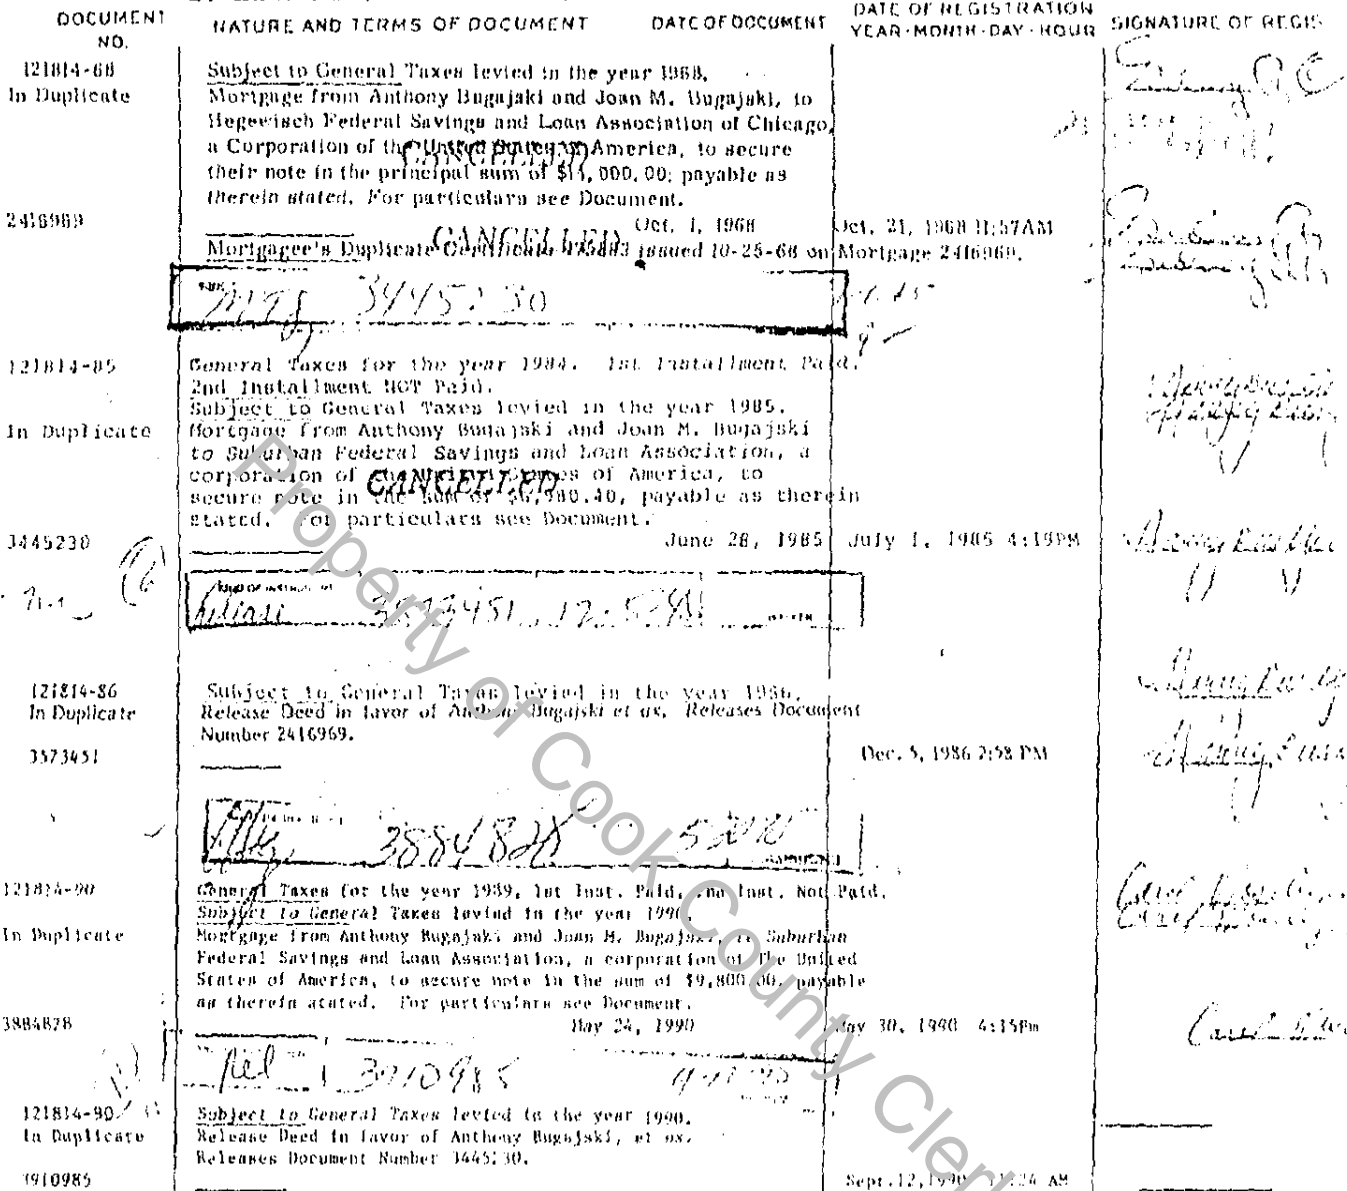 DOCUMENT NO.
NATURE AND TERMS OF DOCUMENT
DATE OF DOCUMENT
DATE OF REGISTRATION
YEAR-MONTH-DAY-HOUR
SIGNATURE OF REGIS
121814-68
In Duplicate
Subject to General Taxes levied in the year 1968.
Mortgage from Anthony Bugajski and Joan M. Bugajski, to
Hegewisch Federal Savings and Loan Association of Chicago,
a Corporation of the United States of America, to secure
CANCELLED
their note in the principal sum of $11,000.00; payable as
therein stated. For particulars see Document.
2416969
Oct. 1, 1968
Oct. 21, 1968 11:57AM
CANCELLED
Mortgagee's Duplicate Certificate issued 10-25-68 on Mortgage 2416969.
Mtg 3445230
121814-85
General Taxes for the year 1984. 1st Installment Paid.
2nd Installment NOT Paid.
Subject to General Taxes levied in the year 1985.
In Duplicate
Mortgage from Anthony Bugajski and Joan M. Bugajski
to Suburban Federal Savings and Loan Association, a
corporation of the United States of America, to
CANCELLED
secure note in the sum of $6,980.40, payable as therein
stated. For particulars see Document.
3445230
June 28, 1985
July 1, 1985 4:19PM
Release 3573451
121814-86
In Duplicate
Subject to General Taxes levied in the year 1986.
Release Deed in favor of Anthony Bugajski et ux. Releases Document
Number 2416969.
3573451
Dec. 5, 1986 2:58 PM
Mtg 3884828
121814-90
General Taxes for the year 1989, 1st Inst. Paid, 2nd Inst. Not Paid.
Subject to General Taxes levied in the year 1990.
In Duplicate
Mortgage from Anthony Bugajski and Joan M. Bugajski, to Suburban
Federal Savings and Loan Association, a corporation of The United
States of America, to secure note in the sum of $9,800.00, payable
as therein stated. For particulars see Document.
3884828
May 24, 1990
May 30, 1990 4:15PM
Rel 3910985
121814-90
In Duplicate
Subject to General Taxes levied in the year 1990.
Release Deed in favor of Anthony Bugajski, et ux.
Releases Document Number 3445230.
3910985
Sept. 12, 1990 11:24 AM
Property of Cook County Clerk